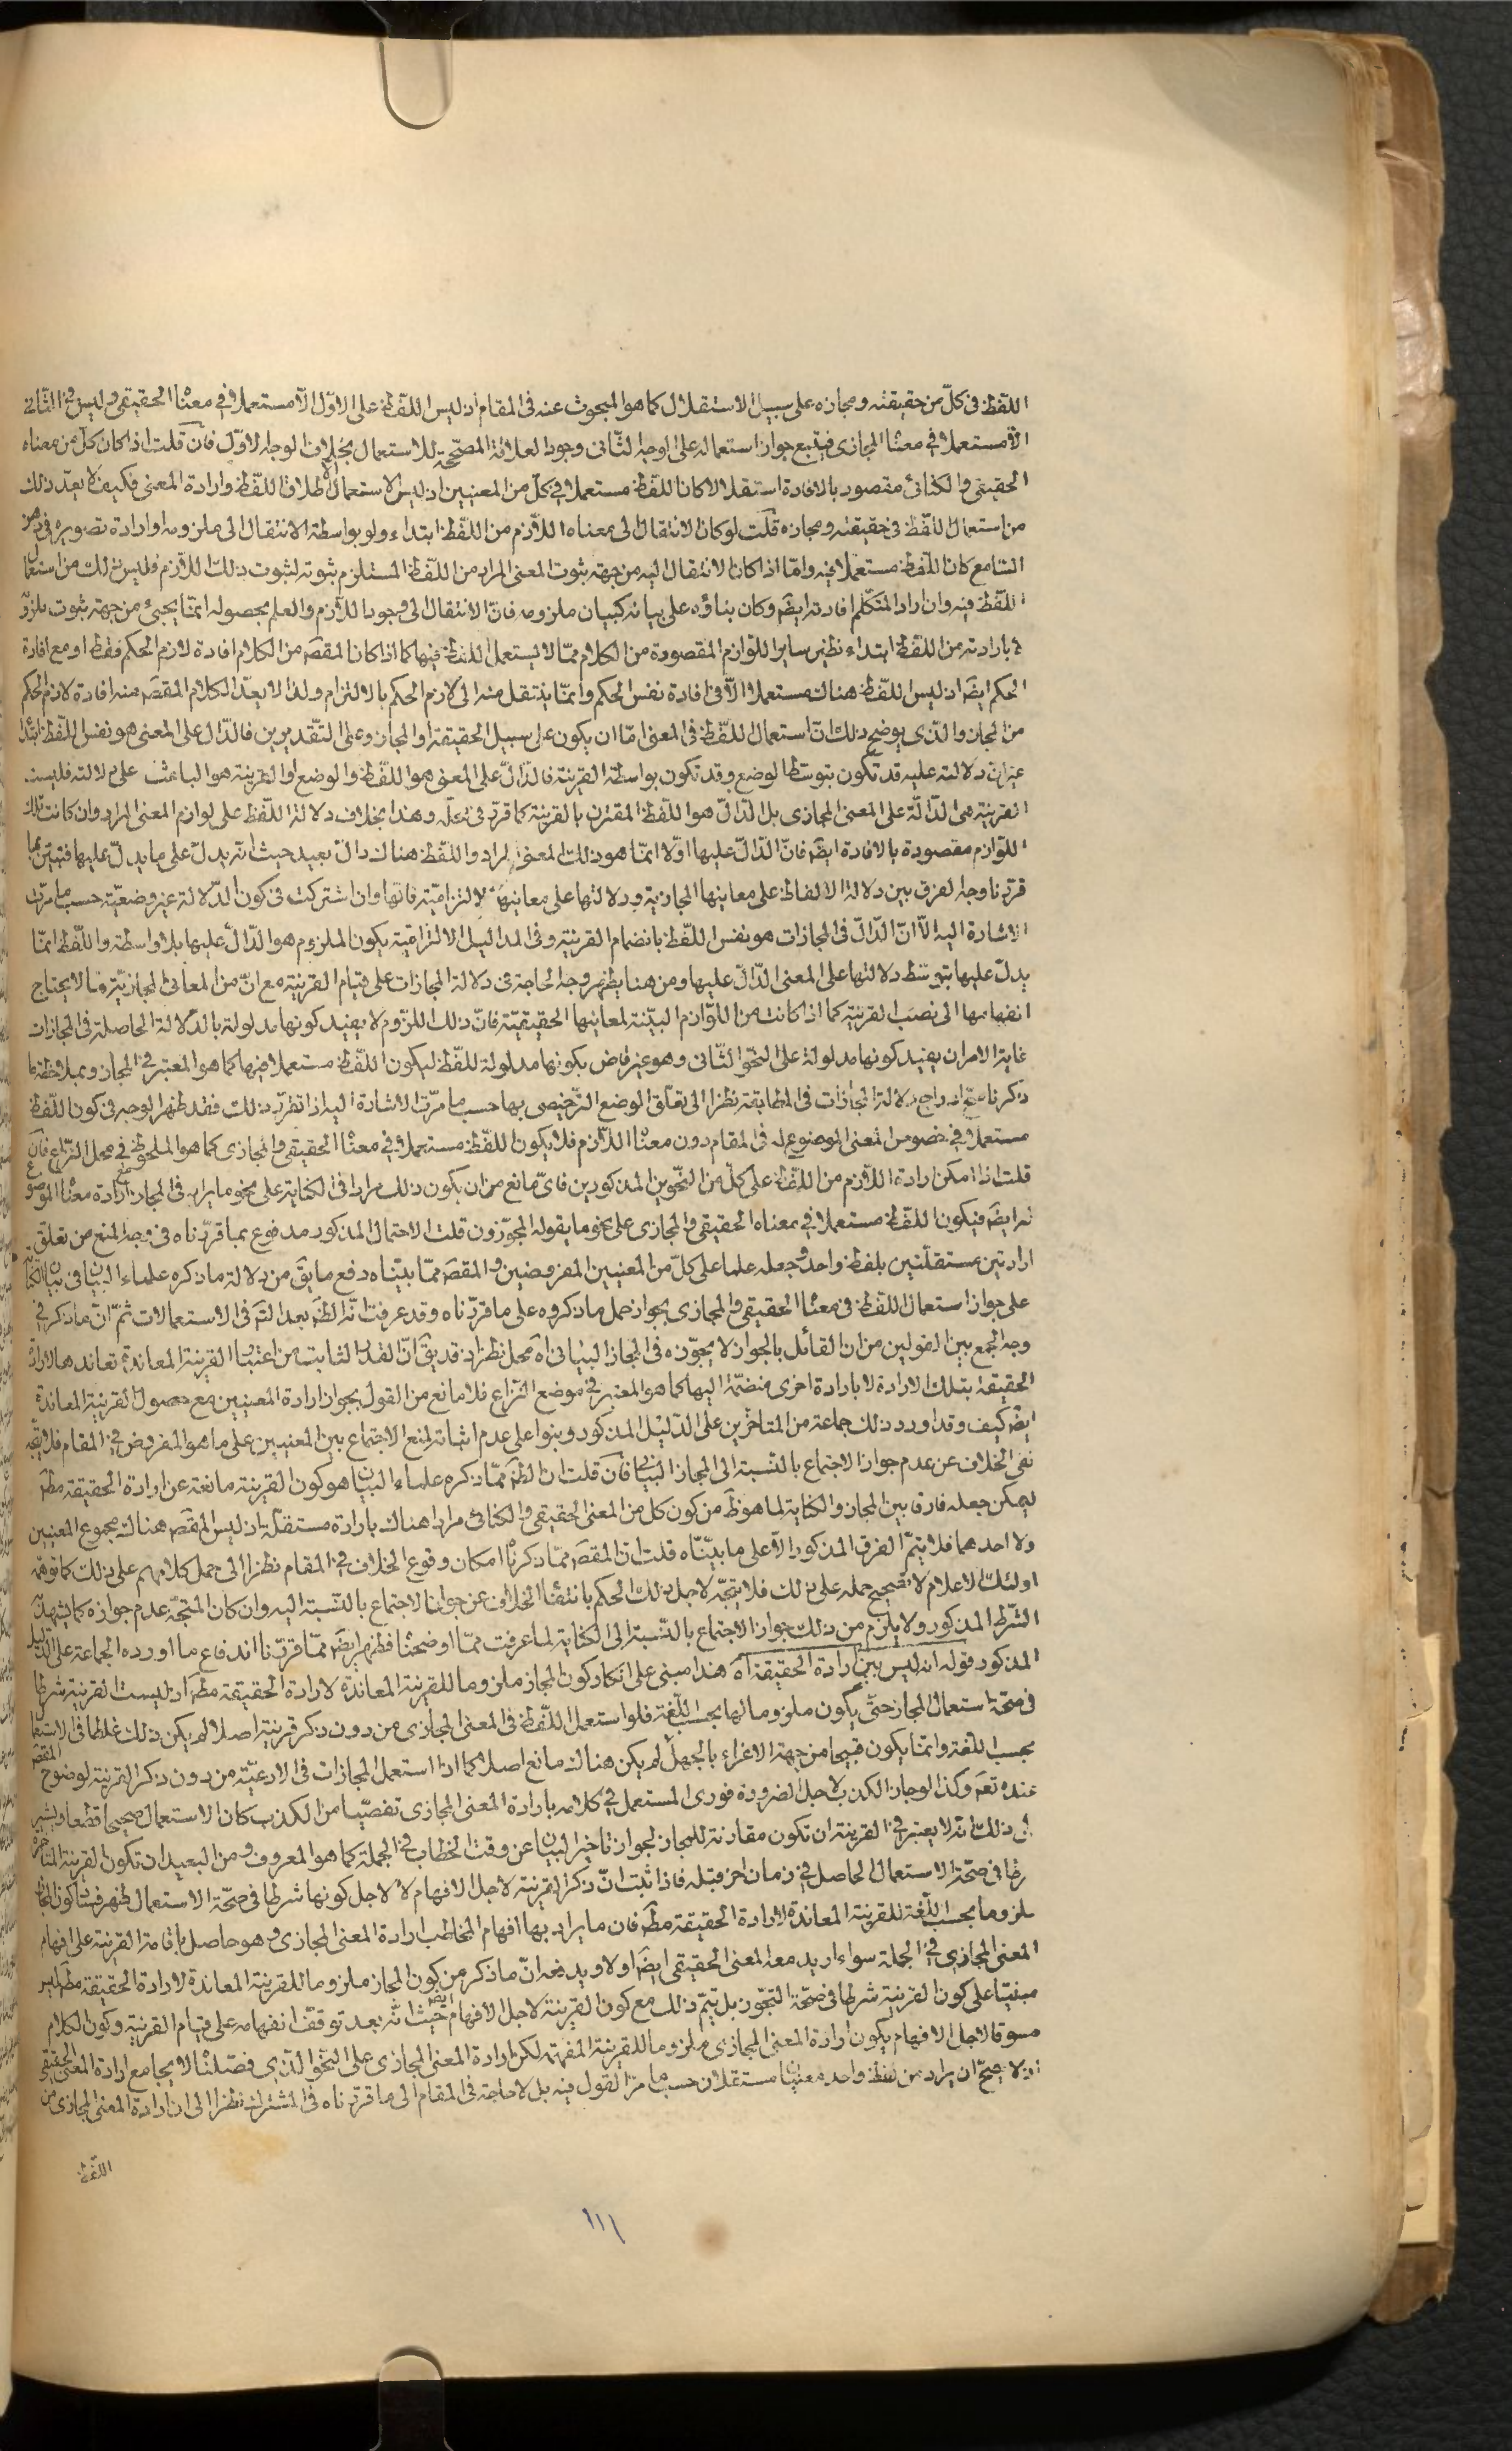 اللفظ فى كلّ من حقيقته ومجازه على سبيل الاستقلال كما هو المبحوث عنه فى المقام اذ ليس اللّفظ على الاوّل الّا مستعملا فى معناه الحقيقى وليس فى الثانى
الّا مستعملا فى معناه المجازى فيتبع جواز استعماله على الوجه الثّانى وجود العلاقة المصحّحة للاستعمال بخلاف الوجه الاوّل فان قلت اذا كان كلّ من معناه
الحقيقى والكنائى مقصود بالافادة استقلالا كان اللّفظ مستعملا فى كلّ من المعنيين اذ ليس الاستعمال الّا اطلاق اللّفظ وارادة المعنى فكيف لا يعدّ ذلك
من استعمال اللّفظ فى حقيقته ومجازه قلت لو كان الانتقال الى معناه اللّازم من اللّفظ ابتداء ولو بواسطة الانتقال الى ملزومه وارادة تصويره فى ذهن
السّامع كان اللّفظ مستعملا فيه وامّا اذا كان الانتقال اليه من جهة ثبوت المعنى المراد من اللّفظ المستلزم ثبوته لثبوت ذلك اللّازم فليس ذلك من استعمال
اللّفظ فيه وان اراد المتكلّم افادته ايضَ وكان بناؤه على بيانه كبيان ملزومه فانّ الانتقال الى وجود اللّازم والعلم بحصوله انّما يجيئ من جهة ثبوت ملزو
بارادته من اللّفظ ابتداء نظير ساير اللّوازم المقصودة من الكلام ممّا لا يستعمل اللفظ فيها كما اذا كان المقصَ من الكلام افادة لازم الحكم فقط او مع افادة
الحكم ايضَ اذ ليس اللّفظ هناك مستعملا الّا فى افادة نفس الحكم وانّما ينتقل منه الى لازم الحكم بالالتزام ولذا لا يعدّ الكلام المقصَ منه افادة لازم الحكم
من المجاز والّذى يوضح ذلك انّ استعمال اللّفظ فى المعنى امّا ان يكون على سبيل الحقيقة او المجاز وعلى التّقديرين فالدّال على المعنى هو نفس اللّفظ ابتداء
غير ان دلالته عليه قد تكون بتوسّط الوضع وقد تكون بواسطة القرينة فالدّالّ على المعنى هو اللّفظ والوضع او القرينة هو الباعث على دلالته فليست
القرينة هى الدّالّة على المعنى المجازى بل الدّالّ هو اللّفظ المقترن بالقرينة كما قرّر فى محلّه وهذا بخلاف دلالة اللّفظ على لوازم المعنى المراد وان كانت تلك
اللّوازم مقصودة بالافادة ايضَ فانّ الدّالّ عليها اوّلا انّما هو ذلك المعنى المراد واللّفظ هناك دالّ بعيد حيث انّه يدلّ على ما يدلّ عليها فتبيّن بما
قرّرنا وجه الفرق بين دلالة الالفاظ على معانيها المجازية ودلالتها على معانيها الالتزاميّة فانّها وان اشتركت فى كون الدّلالة غير وضعيّة حسب ما مرّت
الاشارة اليه الّا انّ الدّالّ فى المجازات هو نفس اللّفظ بانضمام القرينة وفى المداليل الالتزاميّة يكون الملزوم هو الدّالّ عليها بلا واسطة واللّفظ انّما
يدلّ عليها بتوسّط دلالتها على المعنى الدّالّ عليها ومن هنا يظهر وجه الحاجة فى دلالة المجازات على قيام القرينة مع انّ من المعانى المجازيّة ما لا يحتاج
انفهامها الى نصب القرينة كما اذا كانت من اللّوازم البيّنة لمعانيها الحقيقيّة فانّ ذلك اللّزوم لا يفيد كونها مدلولة بالدّلالة الحاصلة فى المجازات
غاية الامر ان يفيد كونها مدلولة على النّحو الثّانى وهو غير قاض بكونها مدلولة للّفظ ليكون اللّفظ مستعملا فيها كما هو المعتبر فى المجاز وبملاحظة ما
ذكرنا صحّ ادراج دلالة المجازات فى المطابقة نظرا الى تعلّق الوضع التّرخيصى بها حسب ما مرّت الاشارة اليه اذا تقرّر ذلك فقد ظهر الوجه فى كون اللّفظ
مستعملا فى خصوص المعنى الموضوع له فى المقام دون معناه اللّازم فلا يكون اللّفظ مستعملا فى معناه الحقيقى والمجازى كما هو الملحوظ فى محل النّزاع فان
قلت اذا امكن ارادة اللّازم من اللّفظ على كلّ من النّحوين المذكورين فاىّ مانع من ان يكون ذلك مرادا فى الكناية على نحو ما يراد فى المجاز مع ارادة معناه الموضوع
له ايضَ فيكون اللّفظ مستعملا فى معناه الحقيقى والمجازى على نحو ما يقوله المجوّزون قلت الاحتمال المذكور مدفوع بما قرّرناه فى وجه المنع من تعلّق
ارادتين مستقلّتين بلفظ واحد وجعله علما على كلّ من المعنيين المفروضين والمقصَ ممّا بيّنّاه دفع ما يقَ من دلالة ما ذكره علماء البيان فى بيان الكناية
على جواز استعمال اللّفظ فى معناه الحقيقى والمجازى بجواز حمل ما ذكروه على ما قرّرناه وقد عرفت انّه الظَ بعد التّتبع فى الاستعمالات ثمّ انّ ما ذكر فى
وجه الجمع بين القولين من ان القائل بالجواز لا يجوّزه فى المجاز البيانى اهَ محل نظر اذ قد يقَ انّ القدر الثابت من اعتبار القرينة المعاندة تعاندها لارادة
الحقيقة بتلك الارادة لا بارادة اخرى منضمّة اليها كما هو المعتبر فى موضع النّزاع فلا مانع من القول بجواز ارادة المعنيين مع حصول القرينة المعاندة
ايضَ كيف وقد اورد ذلك جماعة من المتاخّرين على الدّليل المذكور وبنوا على عدم اثباته لمنع الاجتماع بين المعنيين على ما هو المفروض فى المقام فلا يتّجه
نفى الخلاف عن عدم جواز الاجتماع بالنّسبة الى المجاز البيانى فان قلت انّ الظَ ممّا ذكره علماء البيان هو كون القرينة مانعة عن ارادة الحقيقة مطَ
ليمكن جعله فارقا بين المجاز والكناية لما هو ظَ من كون كل من المعنى الحقيقى والكنائى مرادا هناك بارادة مستقلّة اذ ليس المقصَ هناك مجموع المعنيين
ولا احدهما فلا يتمّ الفرق المذكور الّا على ما بيّنّاه قلت انّ المقصَ ممّا ذكرناه امكان وقوع الخلاف فى المقام نظرا الى حمل كلامهم على ذلك كما توهّمه
اولئك الاعلام لا تصحيح حمله على ذلك فلا يتّجه لاجل ذلك الحكم بانتفاء الخلاف عن جواز الاجتماع بالنّسبة اليه وان كان المتّجه عدم جوازه كما يشهد به
الشّرط المذكور ولا يلزم من ذلك جواز الاجتماع بالنّسبة الى الكناية لما عرفت ممّا اوضحناه فظهر ايضَ ممّا قرّرنا اندفاع ما اورده الجماعة على الدّليل
المذكور قوله انه ليس بين ارادة الحقيقة اهَ هذا مبنى على انكار كون المجاز ملزوما للقرينة المعاندة لارادة الحقيقة مطَ اذ ليست القرينة شرطا
فى صحّة استعمال المجاز حتّى يكون ملزوما لها بحسب اللّغة فلو استعمل اللّفظ فى المعنى المجازى من دون ذكر قرينة اصلا لم يكن ذلك غلطا فى الاستعمال
بحسب اللّغة وانّما يكون قبيحا من جهة الاغراء بالجهل لم يكن هناك مانع اصلا كما اذا استعمل المجازات فى الادعيّة من دون ذكر القرينة لوضوح المقصَ
عنده تعَ وكذا لو جاز الكذب لاجل الضرورة فورى المستعمل فى كلامه بارادة المعنى المجازى تفصّيا من الكذب كان الاستعمال صحيحا قطعا ويشير
الى ذلك انّه لا يعتبر فى القرينة ان تكون مقارنة للمجاز لجواز تاخير البيان عن وقت الخطاب فى الجملة كما هو المعروف ومن البعيد ان تكون القرينة المتاخّرة
شرطا فى صحّة الاستعمال الحاصل فى زمان اخر قبله فاذا ثبت انّ ذكر القرينة لاجل الافهام لا لاجل كونها شرطا فى صحّة الاستعمال ظهر فساد كون المجاز
ملزوما بحسب اللّغة للقرينة المعاندة لارادة الحقيقة مطَ فان ما يراد بها افهام المخاطب ارادة المعنى المجازى وهو حاصل باقامة القرينة على افهام
المعنى المجازى فى الجملة سواء اريد معه المعنى الحقيقى ايضَ او لا ويدفعه انّ ما ذكر من كون المجاز ملزوما للقرينة المعاندة لارادة الحقيقة مطَ ليس
مبنيّا على كون القرينة شرطا فى صحّة التجوّز بل يتمّ ذلك مع كون القرينة لاجل الافهام ايضَ حيث انّه بعد توقّف انفهامه على قيام القرينة وكون الكلام
مسوقا لاجل الافهام يكون ارادة المعنى المجازى ملزوما للقرينة المفهمة لكن ارادة المعنى المجازى على النّحو الّذى فصّلناه لا يجامع ارادة المعنى الحقيقى
اذ لا يصحّ ان يراد من لفظ واحد معنيان مستقلّان حسب ما مرّ القول فيه بل لا حاجة فى المقام الى ما قرّرناه فى المشترك نظرا الى ان ارادة المعنى المجازى من
اللّفظ
١١١